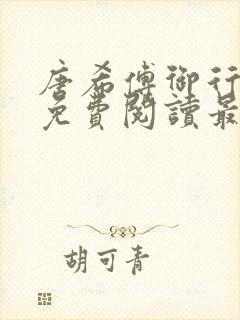 唐希傅御行
免費閱讀最
胡可青